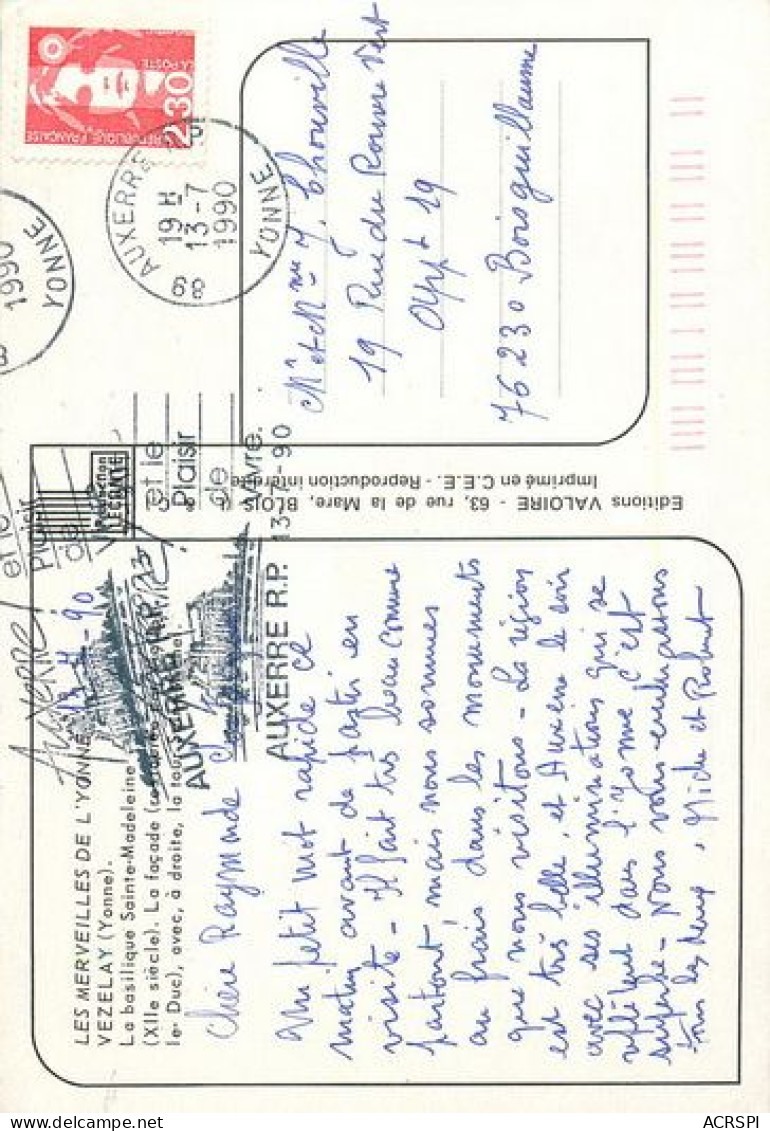 LES MERVEILLES DE L'YONNE
VEZELAY (Yonne).
La basilique Sainte-Madeleine
(XIIe siècle). La façade
le-Duc), avec, à droite, la tour
Auxerre 13-7-90
Chère Raymonde
Un petit mot rapide ce
matin avant de partir en
visite - Il fait très beau comme
partout, mais nous sommes
au frais dans les monuments
que nous visitons - La région
est très belle, et Auxerre le soir
avec ses illuminations qui se
reflètent dans l'Yonne c'est
superbe - Nous vous embrassons
tous les deux,
et Robert
AUXERRE R.P.
AUXERRE R.P.
13-7-90
et le
Plaisir
de
vivre.
et le
Plaisir
de
Production
LECONTE
Editions VALOIRE - 63, rue de la Mare, BLOIS
Imprimé en C.E.E. - Reproduction interdite
LA POSTE
2,30
REPUBLIQUE FRANÇAISE
AUXERRE R.P.
19 H
13-7
1990
89 YONNE
1990
YONNE
Mr et Mme Y. Thouville
19 Rue du Rouvre Vert
Appt 19
76230 Boisguillaume
ACRSPI